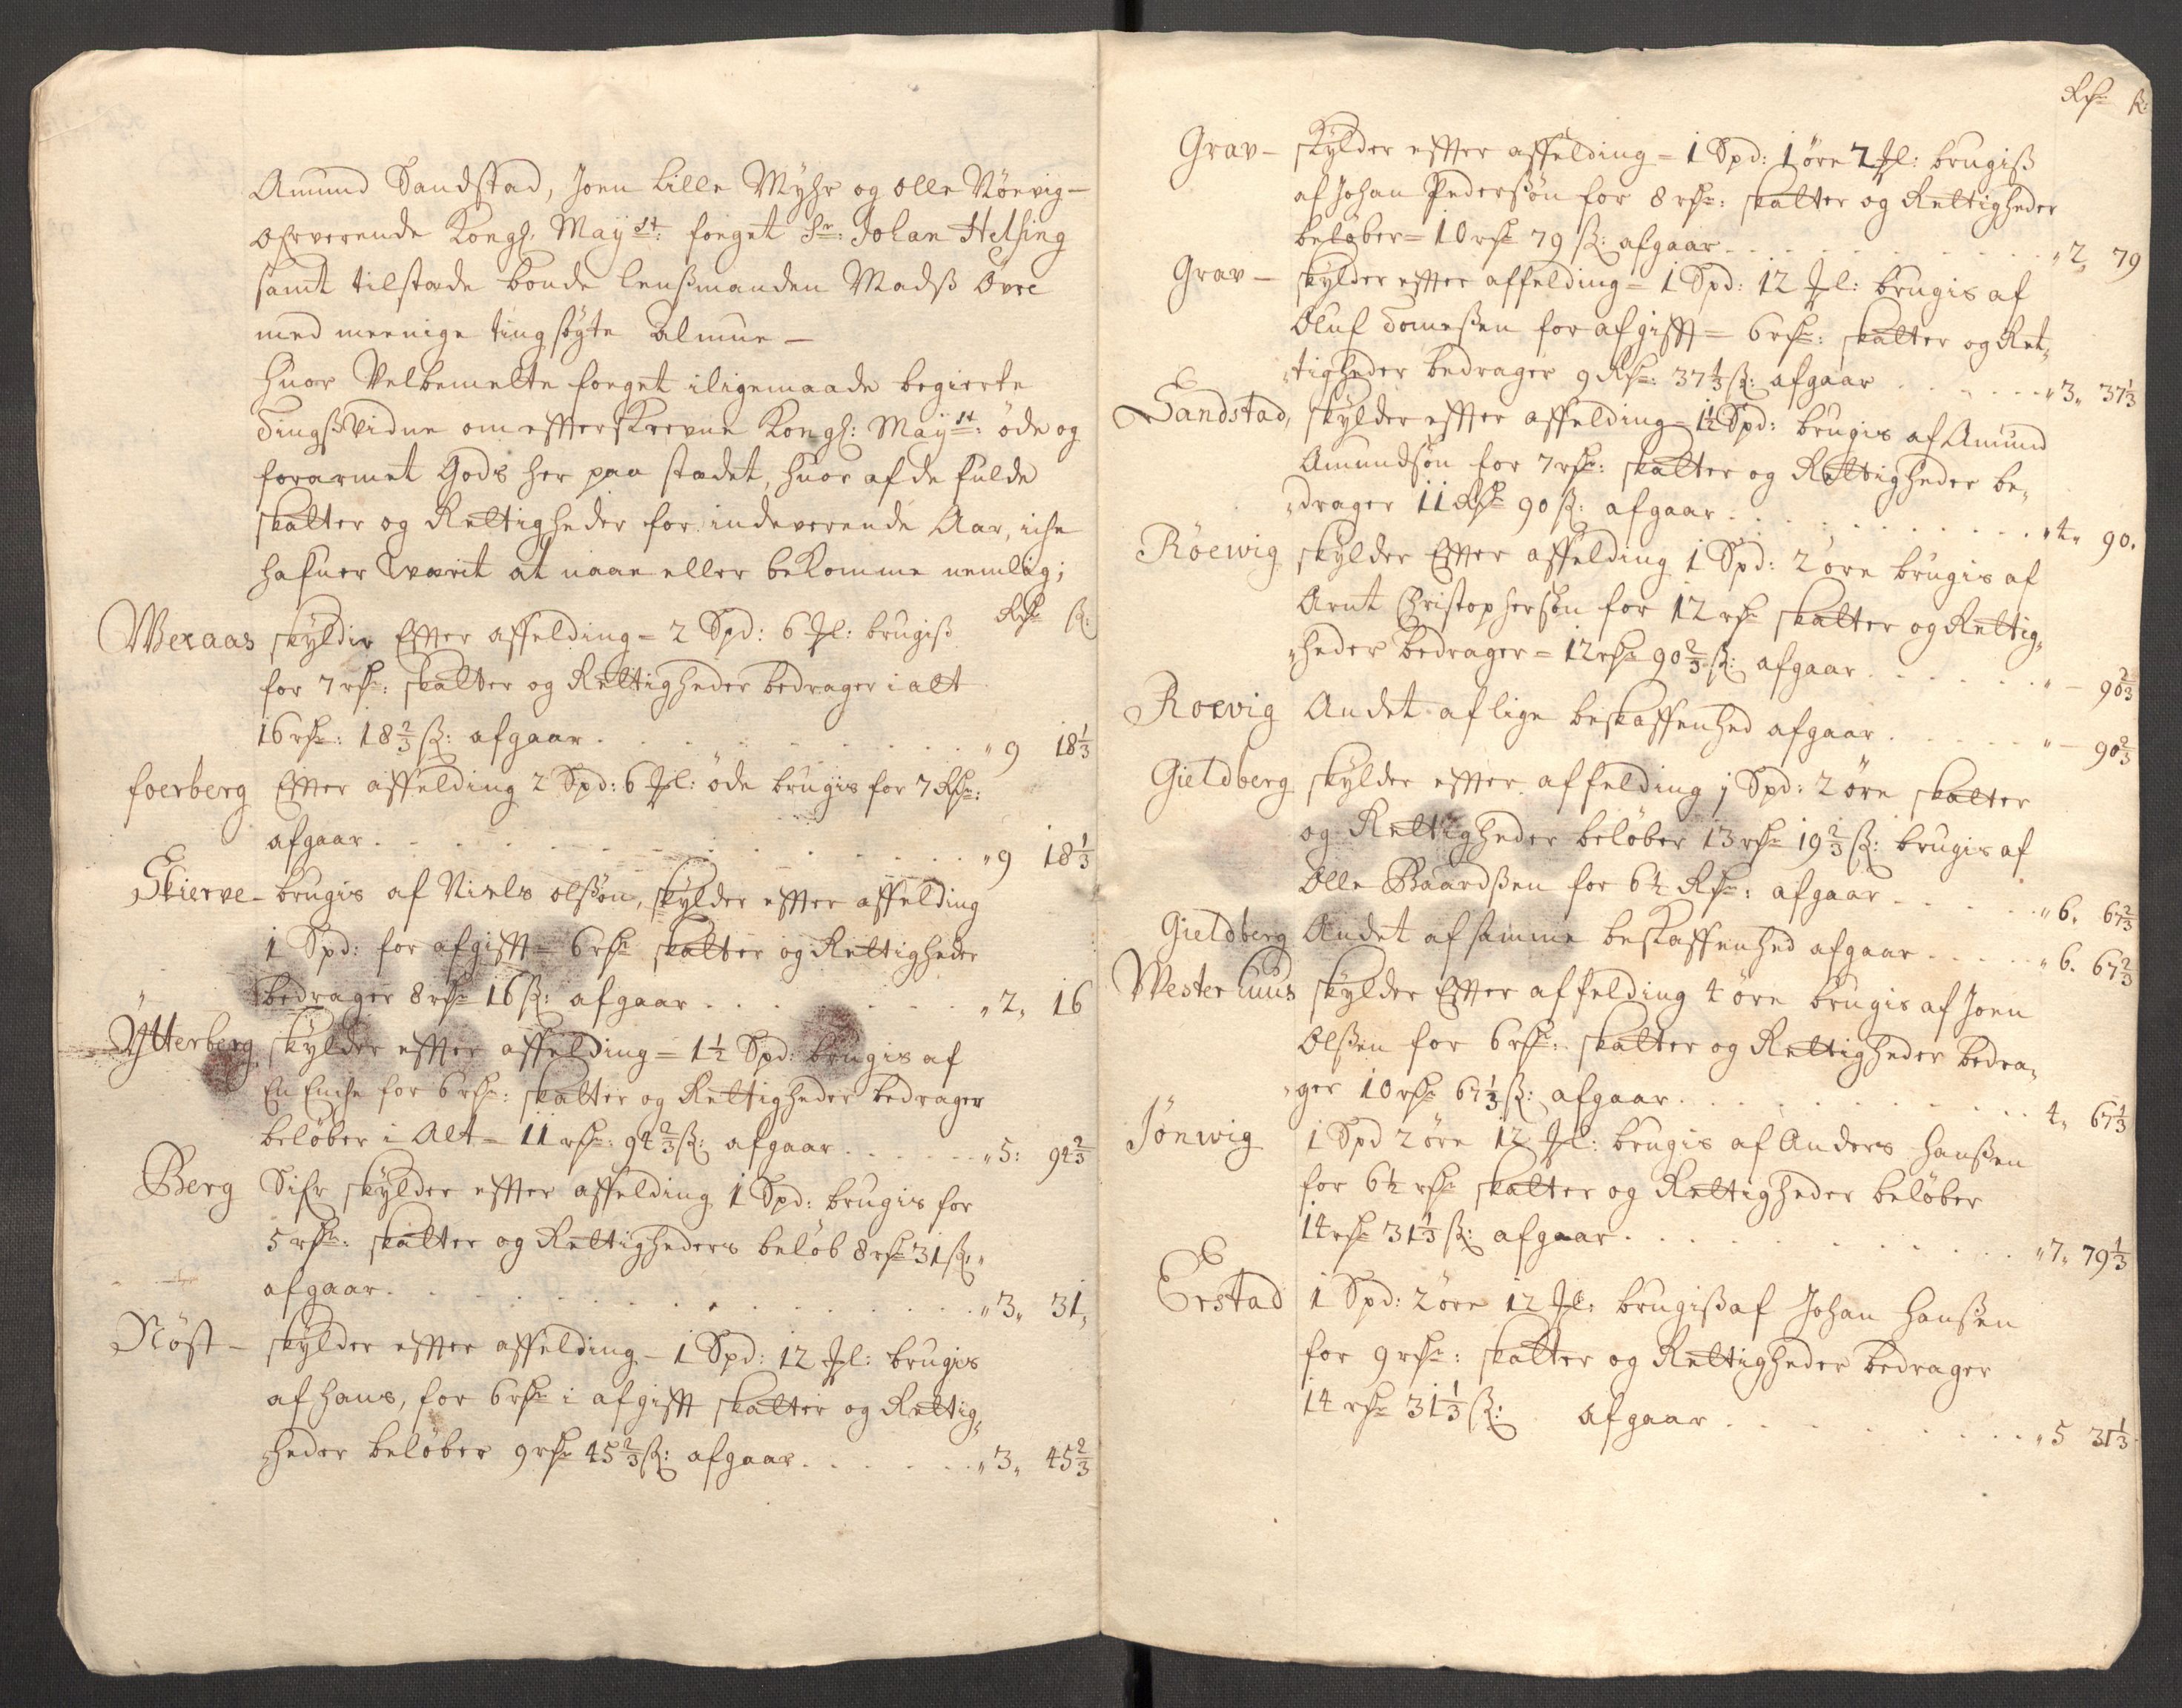 Amund Sandstad, Joen Lille Myhr og Olle Röevig-
Ofververende Kongl. May st: foeget Sr: Johan Helsing
samt tilstæde bonde lensmanden Madß Øvre
med meenige tingsøgte almue -
Huor Velbemelte foeget iligemaade begierte
Tingsvidne om effterskrevne Kongl: May st: öde og
forarmet Gods her paa stædet, huor af de fulde
skatter og Rettigheder for indeverende Aar, iche
hafuer værit at naae eller bekomme nemlig;
Rdr ß:
Weraas skylder Effter affelding = 2 Spd: 6 Ml: brugiß
for 7 rdr: skatter og Rettigheder bedrager i alt
16 rdr: 18 2/3 ß: afgaar . . . " 9 18 1/3
foerberg Effter affelding 2 Spd: 6 Ml: öde brugis for 7 Rdr:
afgaar . . . " 9 18 1/3
Skierve - brugis af Niels olßøn, skylder effter affelding
1 Spd: for afgifft = 6 rdr skatter og Rettigheder
bedrager 8 rdr 16 ß: afgaar . . . " 2, 16
Ytterberg skylder effter affelding = 1 1/2 Spd: brugis af
En Enche for 6 rdr: skatter og Rettigheder bedrager
beløber i Alt = 11 rdr: 94 2/3 ß: afgaar . . . " 5: 94 2/3
Berg Sifr skylder effter affelding 1 Spd: brugis for
5 rdr: skatter og Rettigheders beløb 8 rdr 31 ß:
afgaar . . . " 3, 31,
Nöst - skylder effter affelding - 1 Spd: 12 Ml: brugis
af hans, for 6 rdr i afgifft skatter og Rettig,
heder beløber 9 rdr 45 2/3 ß: afgaar . . . " 3, 45 2/3
Rdr ß:
Grav - skylder effter affelding = 1 Spd: 1 öre 7 Ml: brugiß
af Johan Pedersøn for 8 rdr: skatter og Rettigheder
beløber = 10 rdr 79 ß: afgaar . . . " 2, 79
Grav - skylder effter affelding = 1 Spd: 12 Ml: brugis af
Oluf Tomeßen for afgifft = 6 rdr: skatter og Ret,
tigheder bedrager 9 Rdr: 37 1/3 ß: afgaar . . . " 3, 37 1/3
Sandstad, skylder effter affelding = 1 1/2 Spd: brugis af Amund
Amundsøn for 7 rdr: skatter og Rettigheder be,
drager 11 Rdr 90 ß: afgaar . . . " 4, 90.
Röewig skylder Effter affelding 1 Spd: 2 öre brugis af
Arnt Christophersøn for 12 rdr skatter og Rettig,
heder bedrager = 12 rdr 90 2/3 ß: afgaar . . . " - 90 2/3
Roevig Andet af lige beskaffenhed afgaar . . . " - 90 2/3
Gieldberg skylder effter affelding 1 Spd: 2 öre skatter
og Rettigheder beløber 13 rdr 19 2/3 ß: brugis af
Olle Baardßen for 6 1/2 Rdr: afgaar . . . " 6. 67 2/3
Gieldberg Andet af samme beskaffenhed afgaar . . . " 6. 67 2/3
Wester huus skylder Effter affelding 4 öre brugis af Joen
Olßen for 6 rdr: skatter og Rettigheder bedra,
ger 10 rdr 67 1/3 ß: afgaar . . . 4, 67 1/3
Jönwig 1 Spd 2 öre 12 Ml: brugis af Anders Hanßen
for 6 1/2 rdr skatter og Rettigheder beløber
14 rdr 31 1/3 ß: afgaar . . . " 7, 79 1/3
Erstad 1 Spd: 2 öre 12 Ml: brugiß af Johan Hanßen
for 9 rdr: skatter og Rettigheder bedrager
14 rdr 31 1/3 ß: afgaar . . . " 5 31 1/3